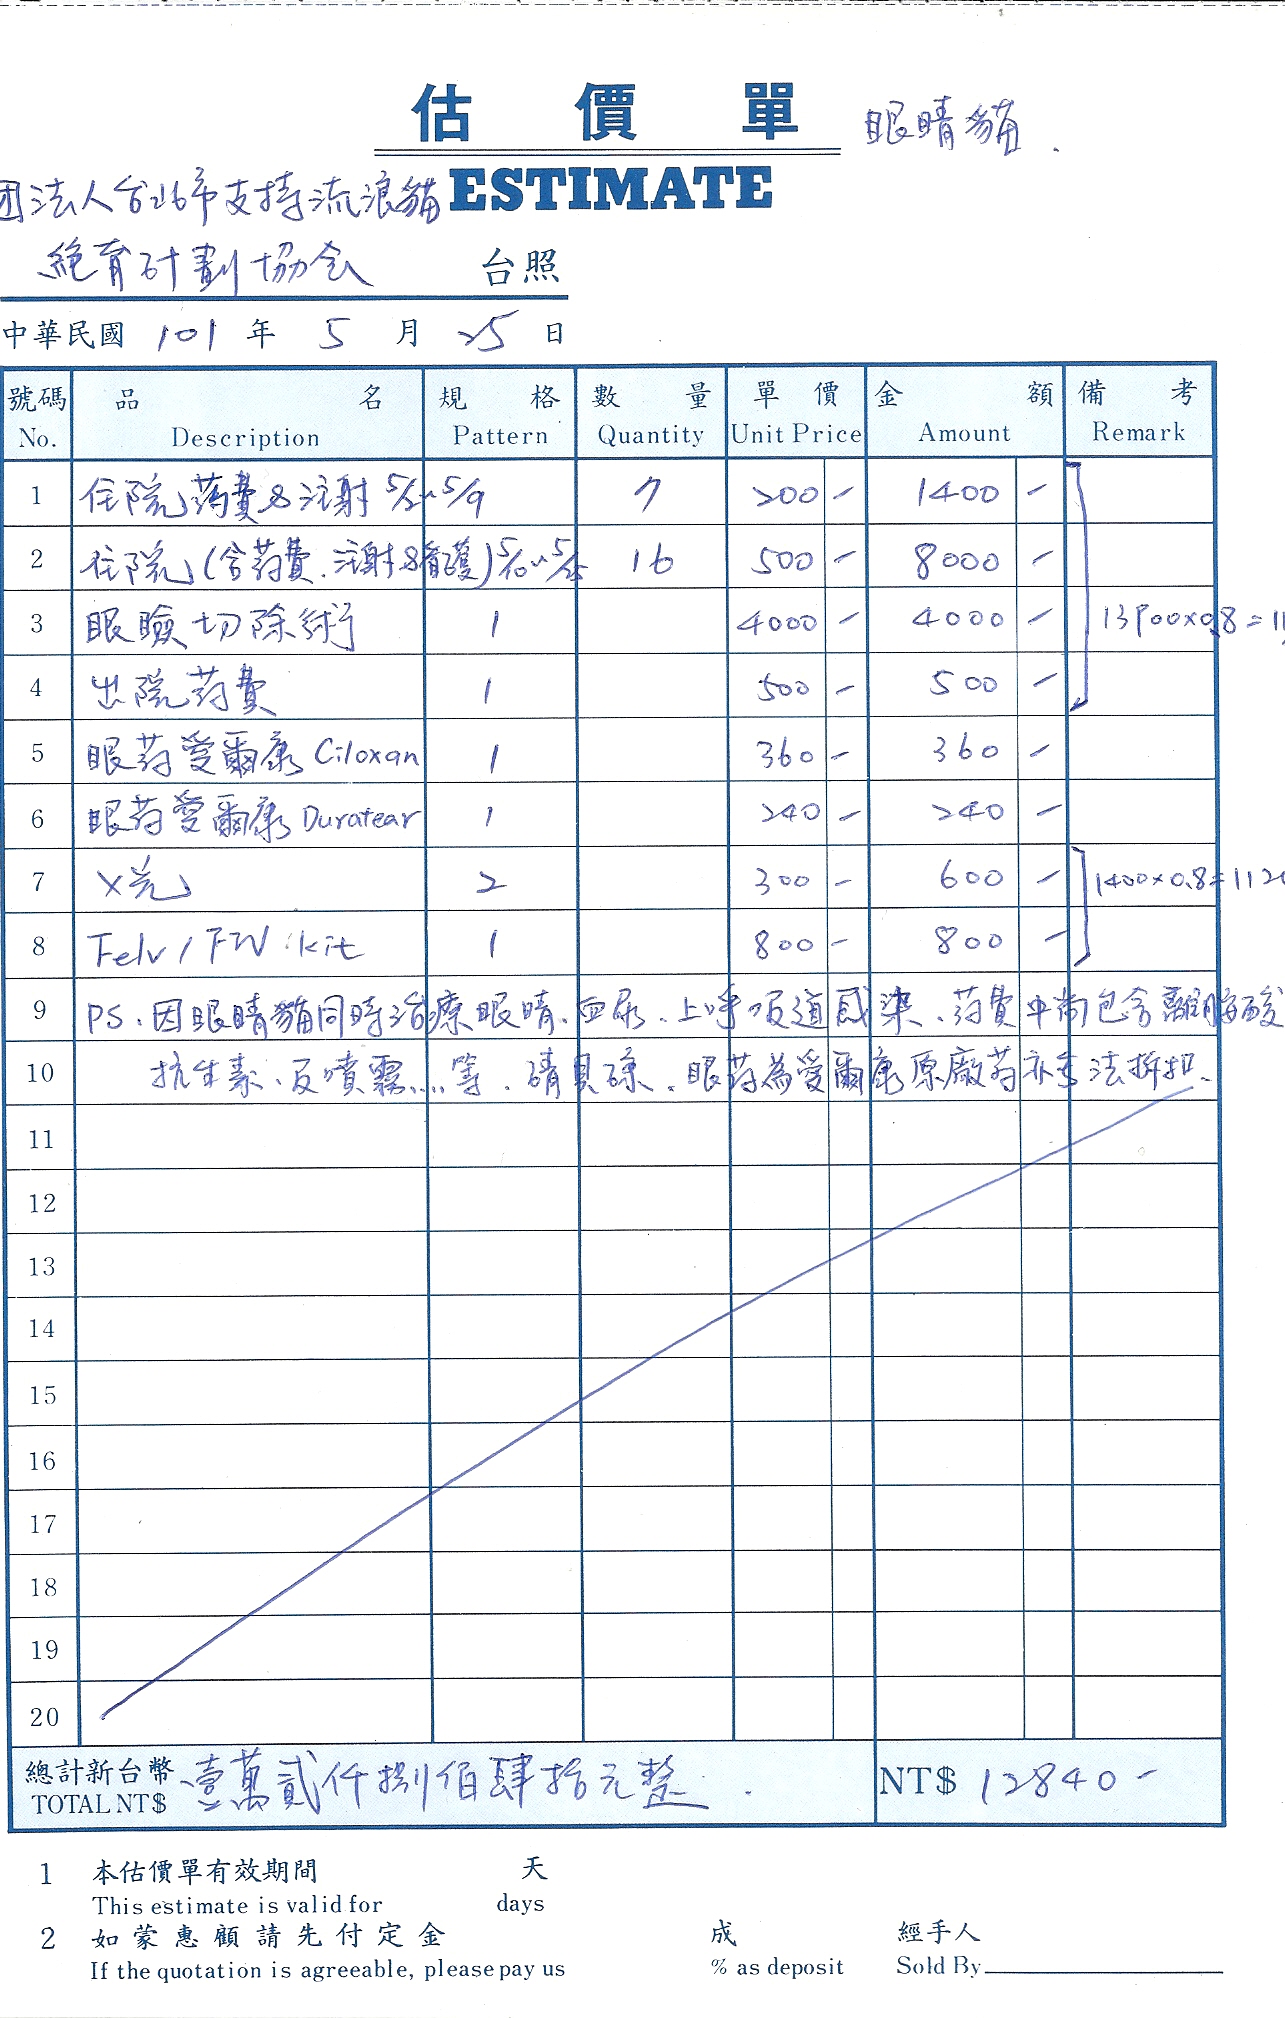 估價單 眼睛貓.
ESTIMATE
团法人台北市支持流浪貓
絕育計劃協会 台照
中華民國 101 年 5 月 25 日
號碼 品名 規格 數量 單價 金額 備考
No. Description Pattern Quantity Unit Price Amount Remark
1 住院药費&注射 5/3~5/9 7 200 - 1400 -
2 住院(含药費、注射&看護) 5/10~5/25 16 500 - 8000 -
3 眼瞼切除術 1 4000 - 4000 - 13900×0.8=11
4 出院药費 1 500 - 500 -
5 眼药愛爾康 Ciloxan 1 360 - 360 -
6 眼药愛爾康 Duratear 1 240 - 240 -
7 X光 2 300 - 600 - 1400×0.8=112
8 Felv/FIV kit 1 800 - 800 -
9 PS. 因眼睛貓同時治療眼睛、血尿、上呼吸道感染、药費中尚包含離胺酸
10 抗生素、及噴霧……等、 眼药為愛爾康原廠药亦無法折扣.
11
12
13
14
15
16
17
18
19
20
總計新台幣 壹萬貳仟捌佰肆拾元整. NT$ 12840-
TOTAL NT$
1 本估價單有效期間 天
This estimate is valid for days
2 如蒙惠顧請先付定金 成 經手人
If the quotation is agreeable, please pay us % as deposit Sold By